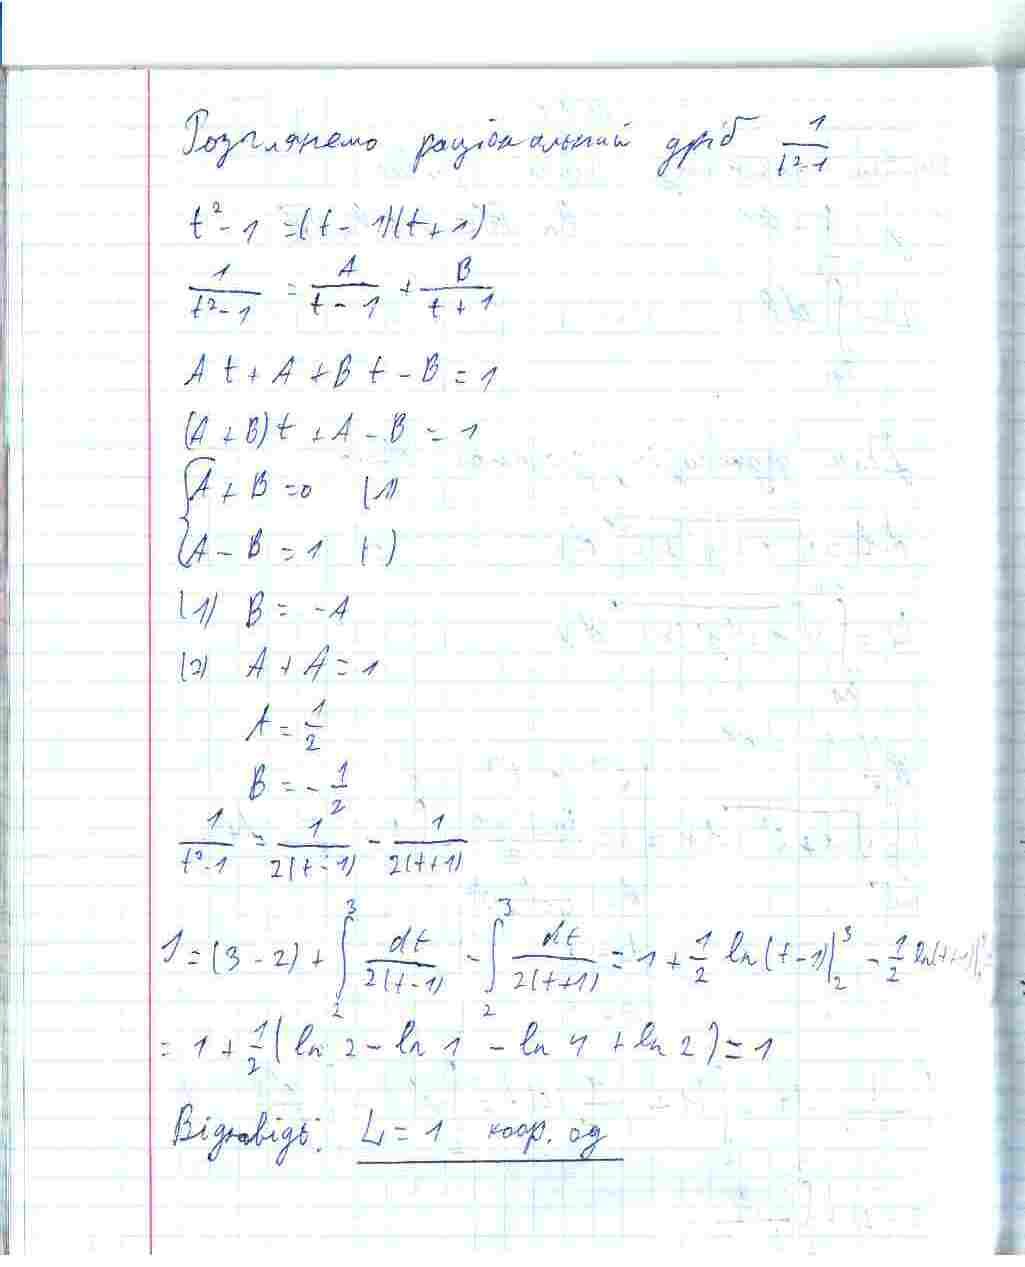 Розглянемо раціональний дріб 1/(t²-1)
t²-1 =(t-1)(t+1)
1/(t²-1) = A/(t-1) + B/(t+1)
At+A+Bt-B=1
(A+B)t+A-B=1
{A+B=0 (1)
A-B=1 ( )
(1) B=-A
(2) A+A=1
A=1/2
B=-1/2
1/(t²-1) = 1/(2(t-1)) - 1/(2(t+1))
J=(3-2)+∫₂³ dt/(2(t-1)) - ∫₂³ dt/(2(t+1)) = 1+1/2 ln(t-1)|₂³ - 1/2 ln(t+1)|
= 1+1/2(ln 2-ln 1-ln 4+ln 2)=1
Відповідь: L=1 коор. од